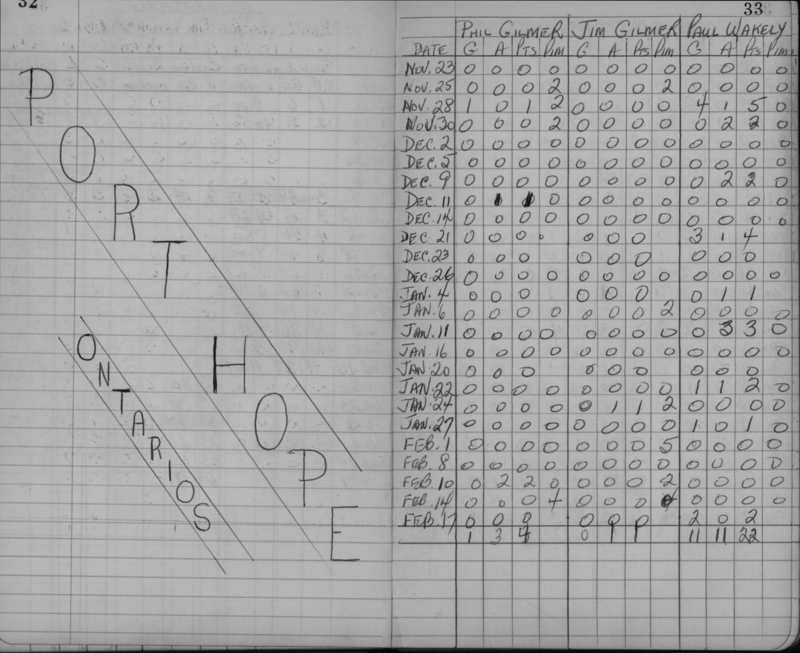 32
PORT HOPE
ONTARIOS
33
PHIL GILMER JIM GILMER PAUL WAKELY
DATE G A PTS PIM G A PTS PIM G A PTS PIM
NOV. 23 0 0 0 0 0 0 0 0 0 0 0 0
NOV. 25 0 0 0 2 0 0 0 2 0 0 0 0
NOV. 28 1 0 1 2 0 0 0 0 4 1 5 0
NOV. 30 0 0 0 2 0 0 0 0 0 2 2 0
DEC. 2 0 0 0 0 0 0 0 0 0 0 0 0
DEC. 5 0 0 0 0 0 0 0 0 0 0 0 0
DEC. 9 0 0 0 0 0 0 0 0 0 2 2 0
DEC. 11 0 1 1 0 0 0 0 0 0 0 0 0
DEC. 14 0 0 0 0 0 0 0 0 0 0 0 0
DEC 21 0 0 0 0 0 0 0 3 1 4
DEC. 23 0 0 0 0 0 0 0 0 0
DEC. 26 0 0 0 0 0 0 0 0 0 0 0 0
JAN. 4 0 0 0 0 0 0 0 1 1
JAN. 6 0 0 0 0 0 0 0 2 0 0 0 0
JAN. 11 0 0 0 0 0 0 0 0 0 3 3 0
JAN. 16 0 0 0 0 0 0 0 0 0 0 0 0
JAN. 20 0 0 0 0 0 0 0 0 0
JAN. 22 0 0 0 0 0 0 0 0 1 1 2 0
JAN. 24 0 0 0 0 0 1 1 2 0 0 0 0
JAN. 27 0 0 0 0 0 0 0 0 1 0 1 0
FEB. 1 0 0 0 0 0 0 0 5 0 0 0 0
FEB. 8 0 0 0 0 0 0 0 0 0 0 0 0
FEB. 10 0 2 2 0 0 0 0 2 0 0 0 0
FEB. 14 0 0 0 4 0 0 0 0 0 0 0
FEB. 17 0 0 0 0 0 0 2 0 2
1 3 4 0 1 1 11 11 22